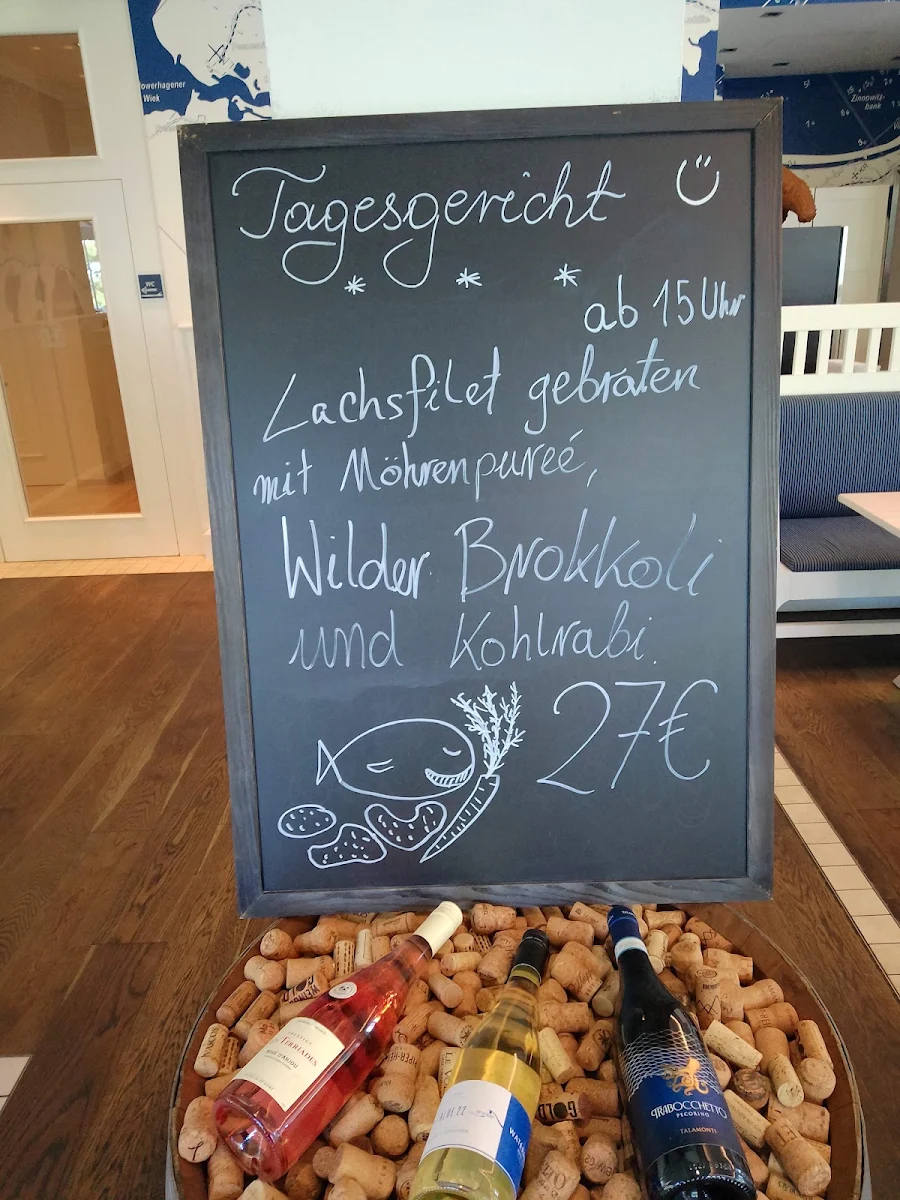 owerhagener
Wiek
Zinnowitz-
bank
WC
Tagesgericht
* * *
ab 15 Uhr
Lachsfilet gebraten
mit Möhrenpureé,
Wilder Brokkoli
und Kohlrabi.
27€
TERRIADES
ROSÉ D'ANJOU
TRABOCCHETTO
PECORINO
TALAMONTI
GOLD